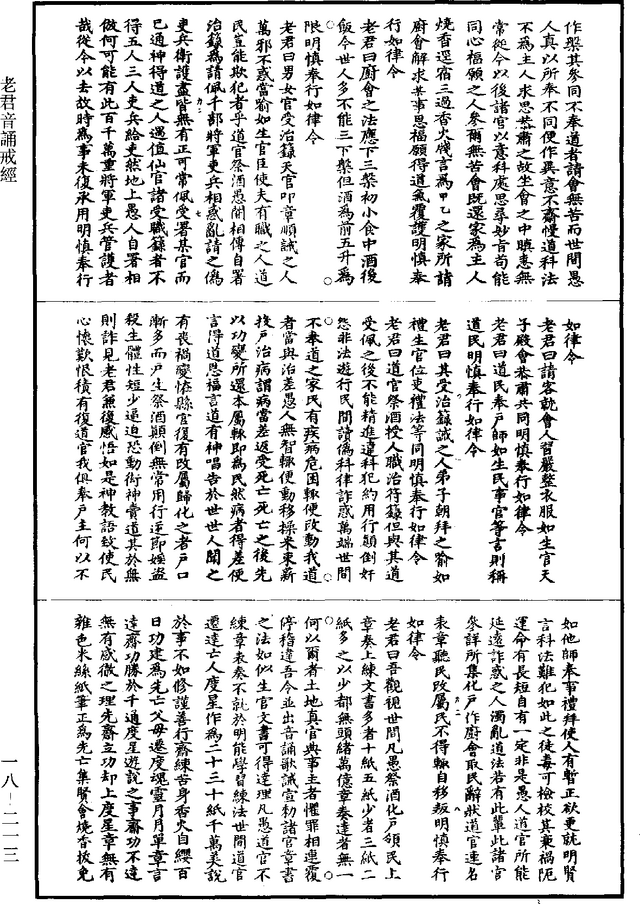 老君音誦戒經
作槃其參同不奉道者請會無苦而世間愚
人真以所奉不同便作異意不齋慢道科法
不為主人求思恭肅之故坐會之中瞋恚無
常從今以後諸官以意科處思尋妙旨苟能
同心福願之人參爾無苦會既還家為主人
燒香還宿三過香火咒言為甲乙之家所請
廚會解求某事思福願得道氣覆護明慎奉
行如律令
老君曰廚會之法應下三槃初小食中酒後
飯今世人多不能三下槃但酒為前五升為
限明慎奉行如律令
老君曰男女官受治籙天官叩章順誡之人
萬邪不惑當喻如生官臣使夫有職之人道
民豈能欺犯者乎道官祭酒愚闇相傳自署
治籙為請佩千部將軍吏兵相惑亂請之偽
吏兵衛護盡皆無有正可常佩受署某官而
已通神得道之人遇值仙官諸受職籙者不
得五人三人吏兵給吏然地上愚人自署相
做何可能有此百千萬重將軍吏兵管護者
哉從今以去故時為事未復承用明慎奉行
如律令
老君曰請客就會人習嚴整衣服如生官天
子殿會恭肅共同明慎奉行如律令
老君曰道民奉戶師如生民事官等言則稱
道民明慎奉行如律令
老君曰其受治籙誡之人弟子朝拜之喻如
禮生官位吏禮法等同明慎奉行如律令
老君曰道官祭酒授人職治符籙但與其道
受佩之後不能精進違科犯約用行顛倒奸
怨非法遊行民間讀偽科律詐惑萬端世間
不奉道之家民有疾病危困輒便改動我道
者當與治差愚人無智輒便動移操米束薪
投戶治病謂病當差返受死亡死亡之後先
以功變所還本屬輒即為民然病者得差便
言得道恩福言道有神唱告於世世人聞之
有喪禍變恠縣官復有改屬歸化之者戶口
漸多而戶生祭酒顛倒無常用行逆節婬盜
殺生體性短少逼迫恐動衒神賣道其於無
則詐見老君無復感悟如是神教語致使民
心懷歎恨積有復道官我俱奉戶主何以不
如他師奉事禮拜使人有暫正欲更就明賢
言科法難犯如此之徒毒可檢校其乘禍阨
運命有長短自有一定非是愚人道官所能
延遶詐惑之人濁亂道法若有此輩此諸官
參詳所集化戶作廚會取民辭狀道官連名
表章聽民改屬民不得輒自移叛明慎奉行
如律令
老君曰吾觀視世間凡愚祭酒化戶領民上
章奏上練文書多者十紙五紙少者三紙二
紙多之以少都無頭緒萬億章奏達者無一
何以爾者土地真官典事主者懼罪相連覆
停稽違吾今並出音誦歌誡宣勑諸官章書
之法如似生官文書可得達理凡愚道官不
練章表奏不就於明能學習練法世間道官
遷達亡人度星作為二十三十紙千萬美說
於事不如修謹善行齋練苦身香火自纓百
日功建為先亡父母遷度魂靈月月單章言
達齋功勝於千通度星遊說之事齋功不達
無有感徹之理先齋立功却上度星章無有
雜色米絲紙筆正為先亡集賢會燒香拔免
一八－二一三